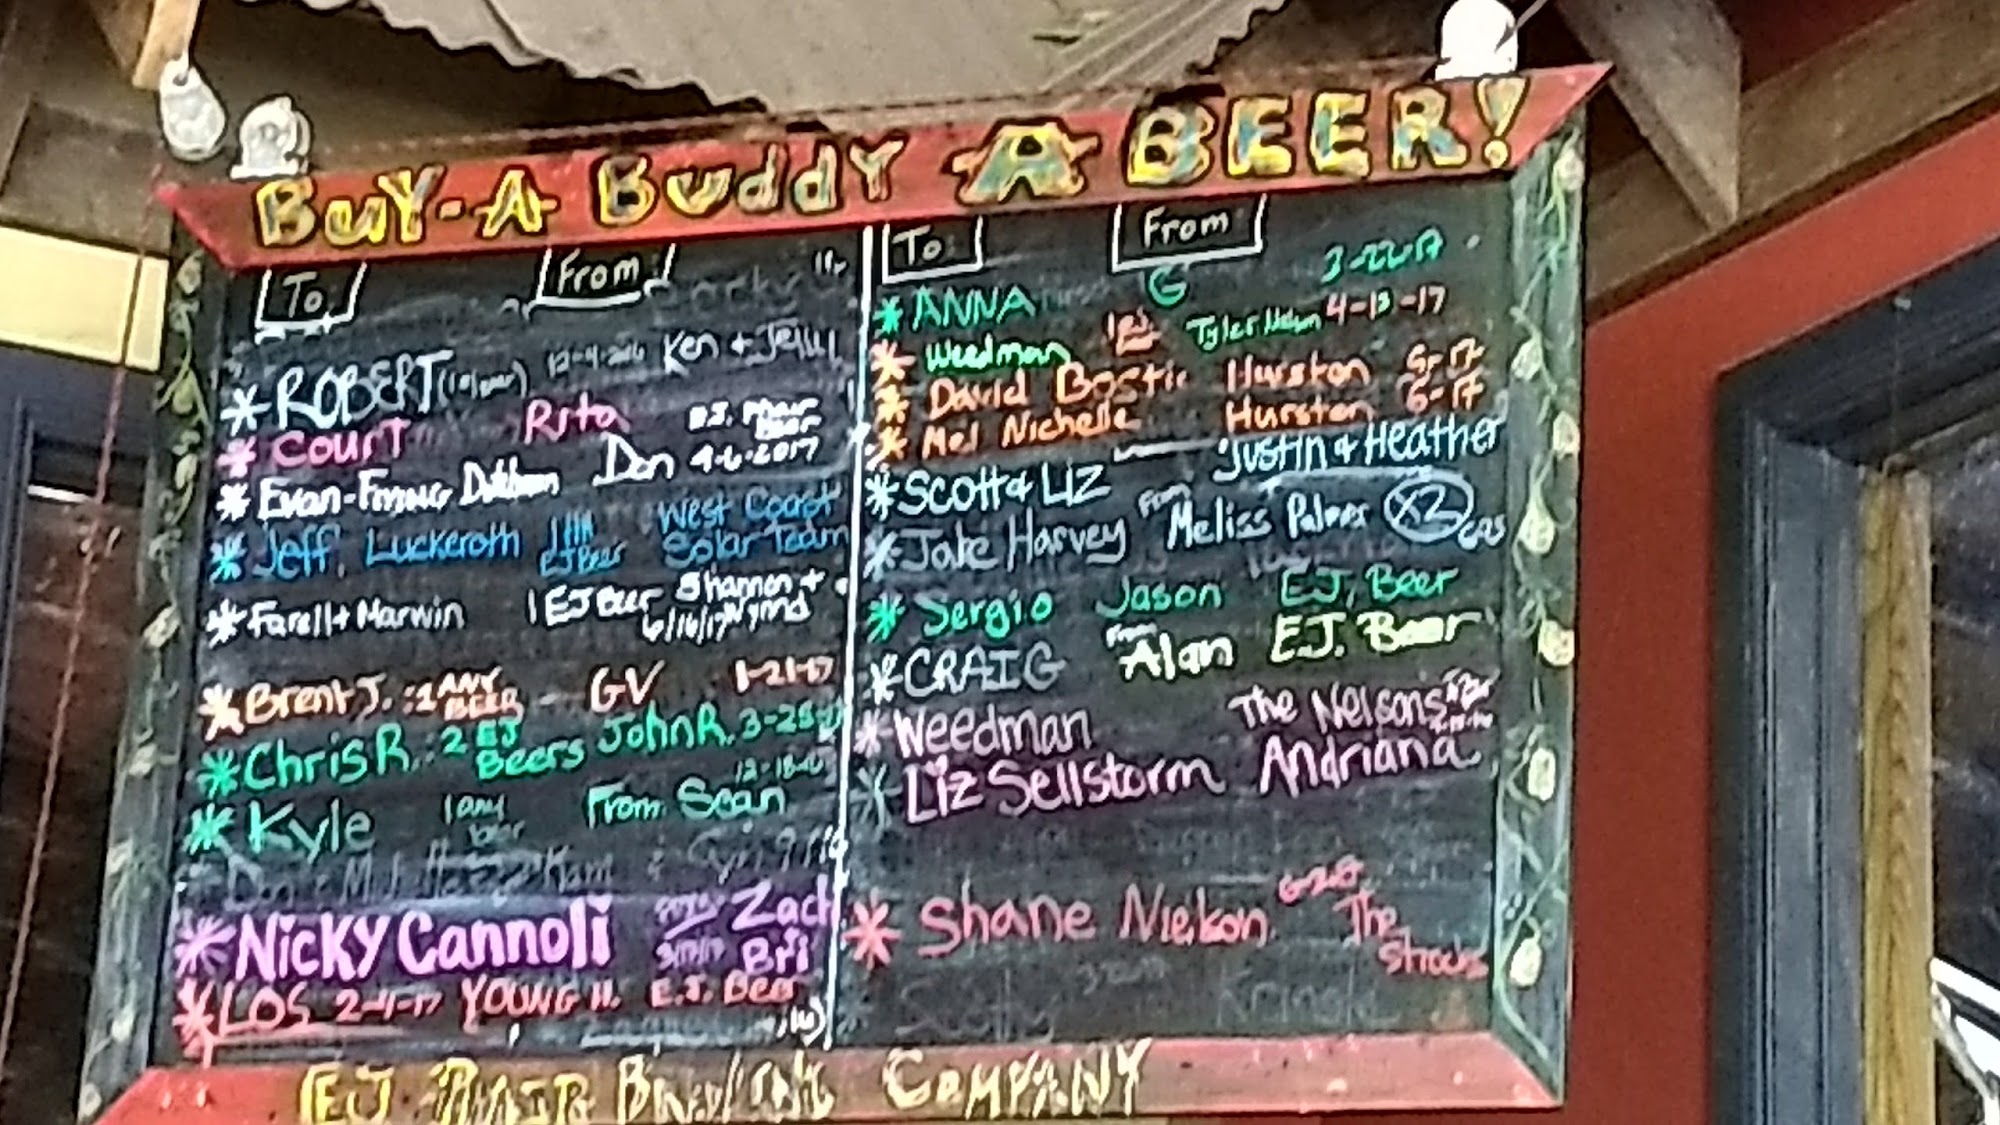 BUY-A BUddY A BEER!
To From
ROBERT 12-4-2016 Ken + Jelly
COURT Rita E.J. Phair Beer
Evan-Flying Dutchman Don 4-6-2017
Jeff Luckeroth EJ Beer West Coast Solar Team
Farell + Marwin 1 EJ Beer Shannon +
6/16/17
Brent J. : 1 ANY BEER - GV 1-21-17
Chris R. : 2 EJ Beers John R. 3-25-17
Kyle 1 any beer From Sean
Nicky Cannoli 3/17/17 Zach Bri
LOS 2-4-17 YOUNG H. E.J. Beer
To From
ANNA G
Weedman Tyler 4-13-17
David Bostic Hurston 6-17
Mel Nichelle Hurston 6-17
Scott & Liz Justin & Heather
Jake Harvey From Meliss Palmer X2
Sergio Jason E.J. Beer
CRAIG From Alan E.J. Beer
Weedman The Nelsons
Liz Sellstorm Andriana
Shane The
EJ PHAIR BREWING COMPANY